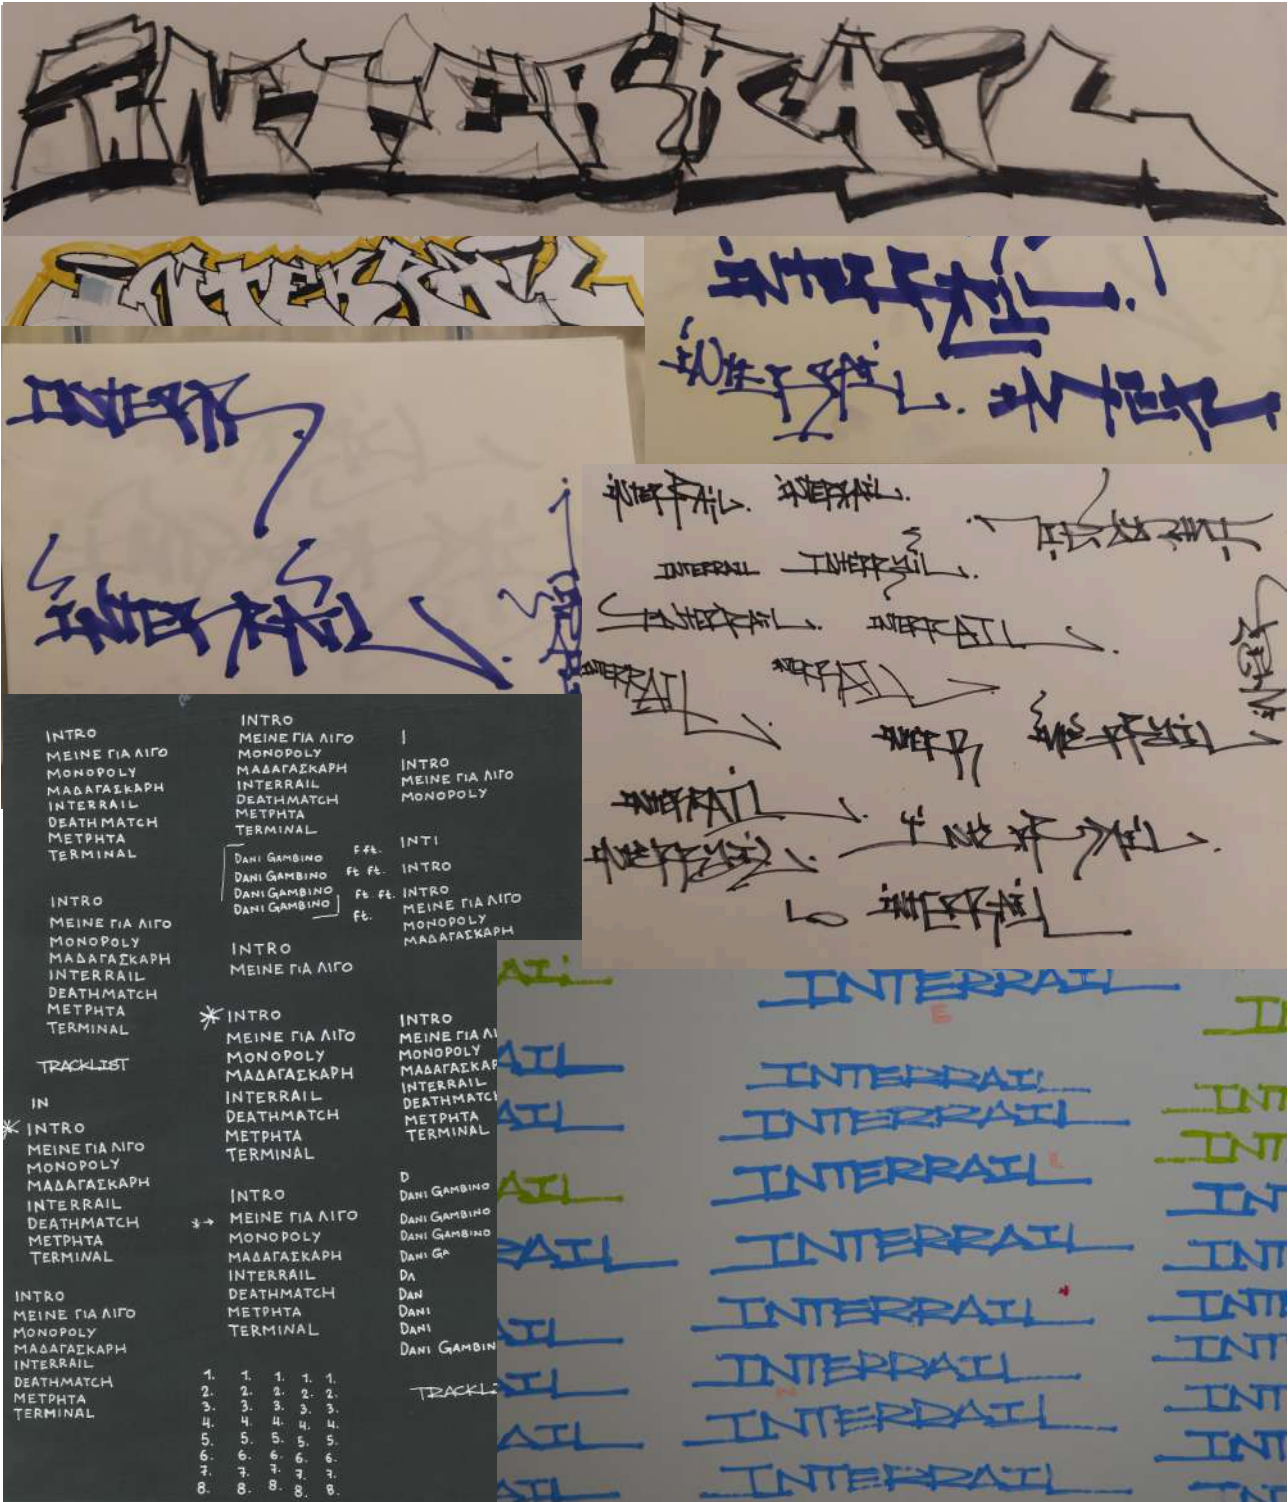 INTERRAIL
INTERRAIL
INTERR
INTERRAIL
INTERRAIL.
INTERRAIL.
INTERRAIL
INTERRAIL.
INTERRAIL.
INTERRAIL
INTERRAIL
INTERRAIL
INTER
INTERRAIL
INTERRAIL
INTERRAIL
INTRO
ΜΕΙΝΕ ΓΙΑ ΛΙΓΟ
MONOPOLY
ΜΑΔΑΓΑΣΚΑΡΗ
INTERRAIL
DEATHMATCH
ΜΕΤΡΗΤΑ
TERMINAL
INTRO
ΜΕΙΝΕ ΓΙΑ ΛΙΓΟ
MONOPOLY
ΜΑΔΑΓΑΣΚΑΡΗ
INTERRAIL
DEATHMATCH
ΜΕΤΡΗΤΑ
TERMINAL
TRACKLIST
IN
INTRO
ΜΕΙΝΕ ΓΙΑ ΛΙΓΟ
MONOPOLY
ΜΑΔΑΓΑΣΚΑΡΗ
INTERRAIL
DEATHMATCH
ΜΕΤΡΗΤΑ
TERMINAL
INTRO
ΜΕΙΝΕ ΓΙΑ ΛΙΓΟ
MONOPOLY
ΜΑΔΑΓΑΣΚΑΡΗ
INTERRAIL
DEATHMATCH
ΜΕΤΡΗΤΑ
TERMINAL
INTRO
ΜΕΙΝΕ ΓΙΑ ΛΙΓΟ
MONOPOLY
ΜΑΔΑΓΑΣΚΑΡΗ
INTERRAIL
DEATHMATCH
ΜΕΤΡΗΤΑ
TERMINAL
DANI GAMBINO
DANI GAMBINO
DANI GAMBINO
DANI GAMBINO
INTRO
ΜΕΙΝΕ ΓΙΑ ΛΙΓΟ
INTRO
ΜΕΙΝΕ ΓΙΑ ΛΙΓΟ
MONOPOLY
ΜΑΔΑΓΑΣΚΑΡΗ
INTERRAIL
DEATHMATCH
ΜΕΤΡΗΤΑ
TERMINAL
INTRO
ΜΕΙΝΕ ΓΙΑ ΛΙΓΟ
MONOPOLY
ΜΑΔΑΓΑΣΚΑΡΗ
INTERRAIL
DEATHMATCH
ΜΕΤΡΗΤΑ
TERMINAL
1. 1. 1. 1. 1.
2. 2. 2. 2. 2.
3. 3. 3. 3. 3.
4. 4. 4. 4. 4.
5. 5. 5. 5. 5.
6. 6. 6. 6. 6.
7. 7. 7. 7. 7.
8. 8. 8. 8. 8.
I
INTRO
ΜΕΙΝΕ ΓΙΑ ΛΙΓΟ
MONOPOLY
F.ft. INTI
ft ft. INTRO
ft. ft. INTRO
ft. ΜΕΙΝΕ ΓΙΑ ΛΙΓΟ
MONOPOLY
ΜΑΔΑΓΑΣΚΑΡΗ
INTRO
ΜΕΙΝΕ ΓΙΑ ΛΙ
MONOPOLY
ΜΑΔΑΓΑΣΚΑΡ
INTERRAIL
DEATHMATCH
ΜΕΤΡΗΤΑ
TERMINAL
D
DANI GAMBINO
DANI GAMBINO
DANI GAMBINO
DANI GA
DA
DAN
DANI
DANI
DANI GAMBIN
TRACKLI
AIL
AIL
AIL
AIL
RAIL
AIL
AIL
AIL
AIL
INTERRAIL
E
INTERRAIL
INTERRAIL
INTERRAIL
INTERRAIL
INTERRAIL
INTERRAIL
INTERRAIL
INTERRAIL
I
INT
INT
IN
INT
INT
INT
INT
INT
IN